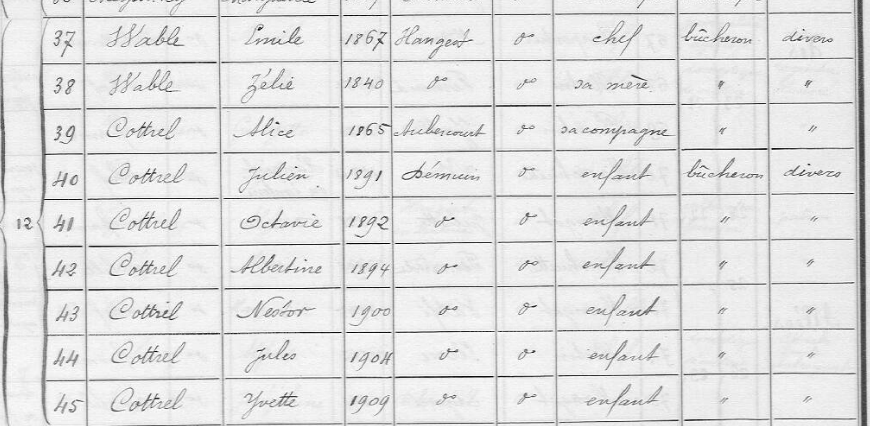 37 Wable Emile 1867 Hangest do chef bûcheron divers
38 Wable Zélie 1840 do do sa mère " "
39 Cottrel Alice 1865 Aubercourt do sa compagne " "
40 Cottrel Julien 1891 Démuin do enfant bûcheron divers
12 41 Cottrel Octavie 1892 do do enfant " "
42 Cottrel Albertine 1894 do do enfant " "
43 Cottrel Nestor 1900 do do enfant " "
44 Cottrel Jules 1904 do do enfant " "
45 Cottrel Yvette 1909 do do enfant " "